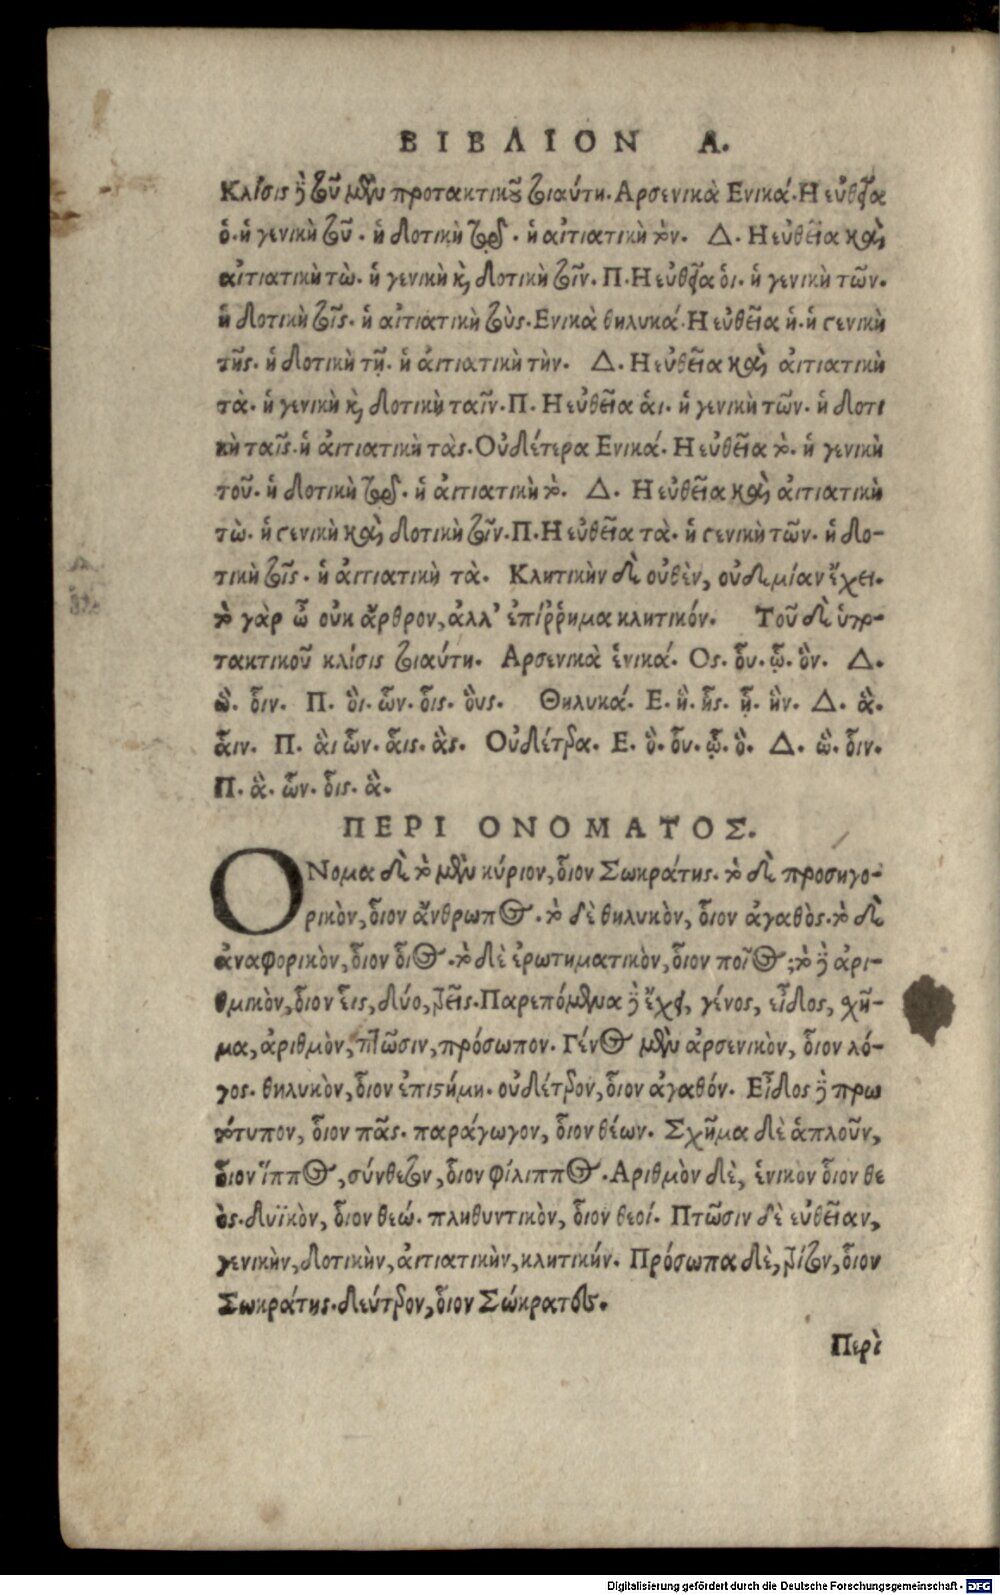 ΒΙΒΛΙΟΝ Α.
Κλίσις δὲ τοῦ μὲν προτακτικοῦ τοιαύτη. Αρσενικὰ Ενικά. Η εὐθεῖα
ὁ. ἡ γενικὴ τοῦ. ἡ δοτικὴ τῷ. ἡ αἰτιατικὴ τὸν. Δ. Η εὐθεῖα καὶ
αἰτιατικὴ τὼ. ἡ γενικὴ καὶ δοτικὴ τοῖν. Π. Η εὐθεῖα ὁι. ἡ γενικὴ τῶν.
ἡ δοτικὴ τοῖς. ἡ αἰτιατικὴ τοὺς. Ενικὰ θηλυκά. Η εὐθεῖα ἡ. ἡ γενικὴ
τῆς. ἡ δοτικὴ τῇ. ἡ ἀιτιατικὴ τὴν. Δ. Η εὐθεῖα καὶ ἀιτιατικὴ
τὰ. ἡ γενικὴ καὶ δοτικὴ ταῖν. Π. Η εὐθεῖα ἁι. ἡ γενικὴ τῶν. ἡ δοτι
κὴ ταῖς. ἡ ἀιτιατικὴ τὰς. Οὐδέτερα Ενικά. Η εὐθεῖα τὸ. ἡ γενικὴ
τοῦ. ἡ δοτικὴ τῷ. ἡ ἀιτιατικὴ τὸ. Δ. Η εὐθεῖα καὶ ἀιτιατικὴ
τὼ. ἡ γενικὴ καὶ δοτικὴ τοῖν. Π. Η εὐθεῖα τὰ. ἡ γενικὴ τῶν. ἡ δο-
τικὴ τοῖς. ἡ ἀιτιατικὴ τὰ. Κλητικὴν δὲ οὐθὲν, οὐδεμίαν ἔχει.
τὸ γὰρ ὦ οὐκ ἄρθρον, ἀλλ' ἐπίῤῥημα κλητικόν. Τοῦ δὲ ὑπο-
τακτικοῦ κλίσις τοιαύτη. Αρσενικὰ ἑνικά. Ος. ὗυ. ᾧ. ὃν. Δ.
ὣ. ὅιν. Π. ὃι. ὧν. ὅις. ὃυς. Θηλυκά. Ε. ἣ. ἧς. ᾗ. ἣν. Δ. ἃ.
ἅιν. Π. ἃι ὧν. ἅις. ἃς. Οὐδέτερα. Ε. ὃ. ὅυ. ᾧ. ὃ. Δ. ὣ. ὅιν.
Π. ἃ. ὧν. ὅις. ἃ.
ΠΕΡΙ ΟΝΟΜΑΤΟΣ.
ΟΝομα δὲ τὸ μὲν κύριον, ὅιον Σωκράτης. τὸ δὲ προσηγο-
ρικὸν, ὅιον ἄνθρωπος. τὸ δὲ θηλυκὸν, ὅιον ἀγαθὸς. τὸ δὲ
ἀναφορικὸν, ὅιον ὅιος. τὸ δὲ ἐρωτηματικὸν, ὅιον ποῖος; τὸ δὲ ἀρι-
θμικὸν, ὅιον ἑις, δύο, τρεῖς. Παρεπόμενα δὲ ἔχει, γένος, εἶδος, χῆ-
μα, ἀριθμὸν, πτῶσιν, πρόσωπον. Γένος μὲν ἀρσενικὸν, ὅιον λό-
γος. θηλυκὸν, ὅιον ἐπιστήμη. οὐδέτερον, ὅιον ἀγαθόν. Εἶδος δὲ πρω
τότυπον, ὅιον πᾶς. παράγωγον, ὅιον θέων. Σχῆμα δὲ ἁπλοῦν,
ὅιον ἵππος, σύνθετον, ὅιον φίλιππος. Αριθμὸν δὲ, ἑνικὸν ὅιον θε
ὸς. δυϊκὸν, ὅιον θεώ. πληθυντικὸν, ὅιον θεοί. Πτῶσιν δὲ εὐθεῖαν,
γενικὴν, δοτικὴν, ἀιτιατικὴν, κλητικήν. Πρόσωπα δὲ, τρίτον, ὅιον
Σωκράτης. δεύτερον, ὅιον Σώκρατες.
Περὶ
Digitalisierung gefördert durch die Deutsche Forschungsgemeinschaft - DFG